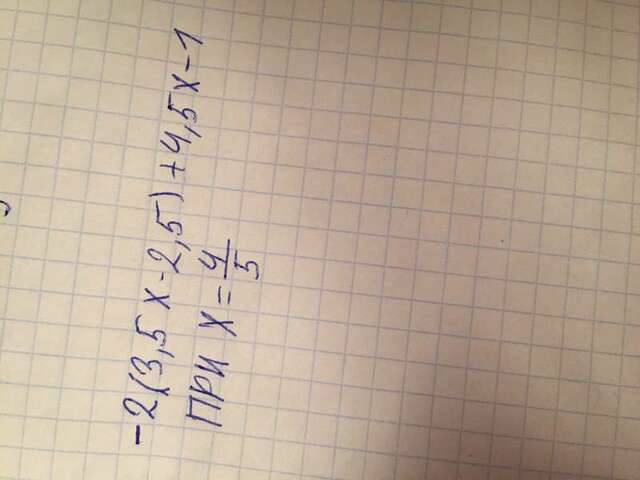 -2(3,5x-2,5)+4,5x-1
ПРИ x=4/5